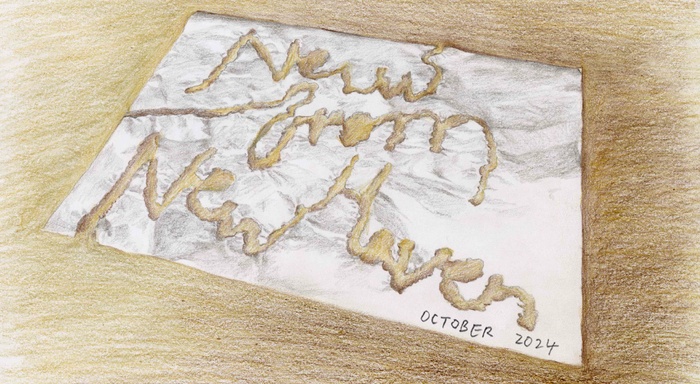 News
from
New Haven
OCTOBER 2024